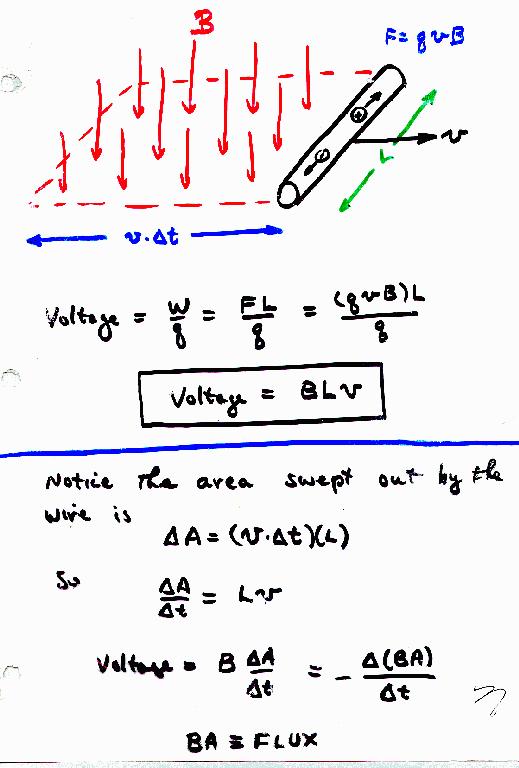 B
F = qvB
+
-
v
L
v·Δt
Voltage = W/q = FL/q = (qvB)L/q
Voltage = BLv
Notice the area swept out by the
wire is
ΔA = (v·Δt)(L)
So
ΔA/Δt = Lv
Voltage = B ΔA/Δt = - Δ(BA)/Δt
BA ≡ FLUX